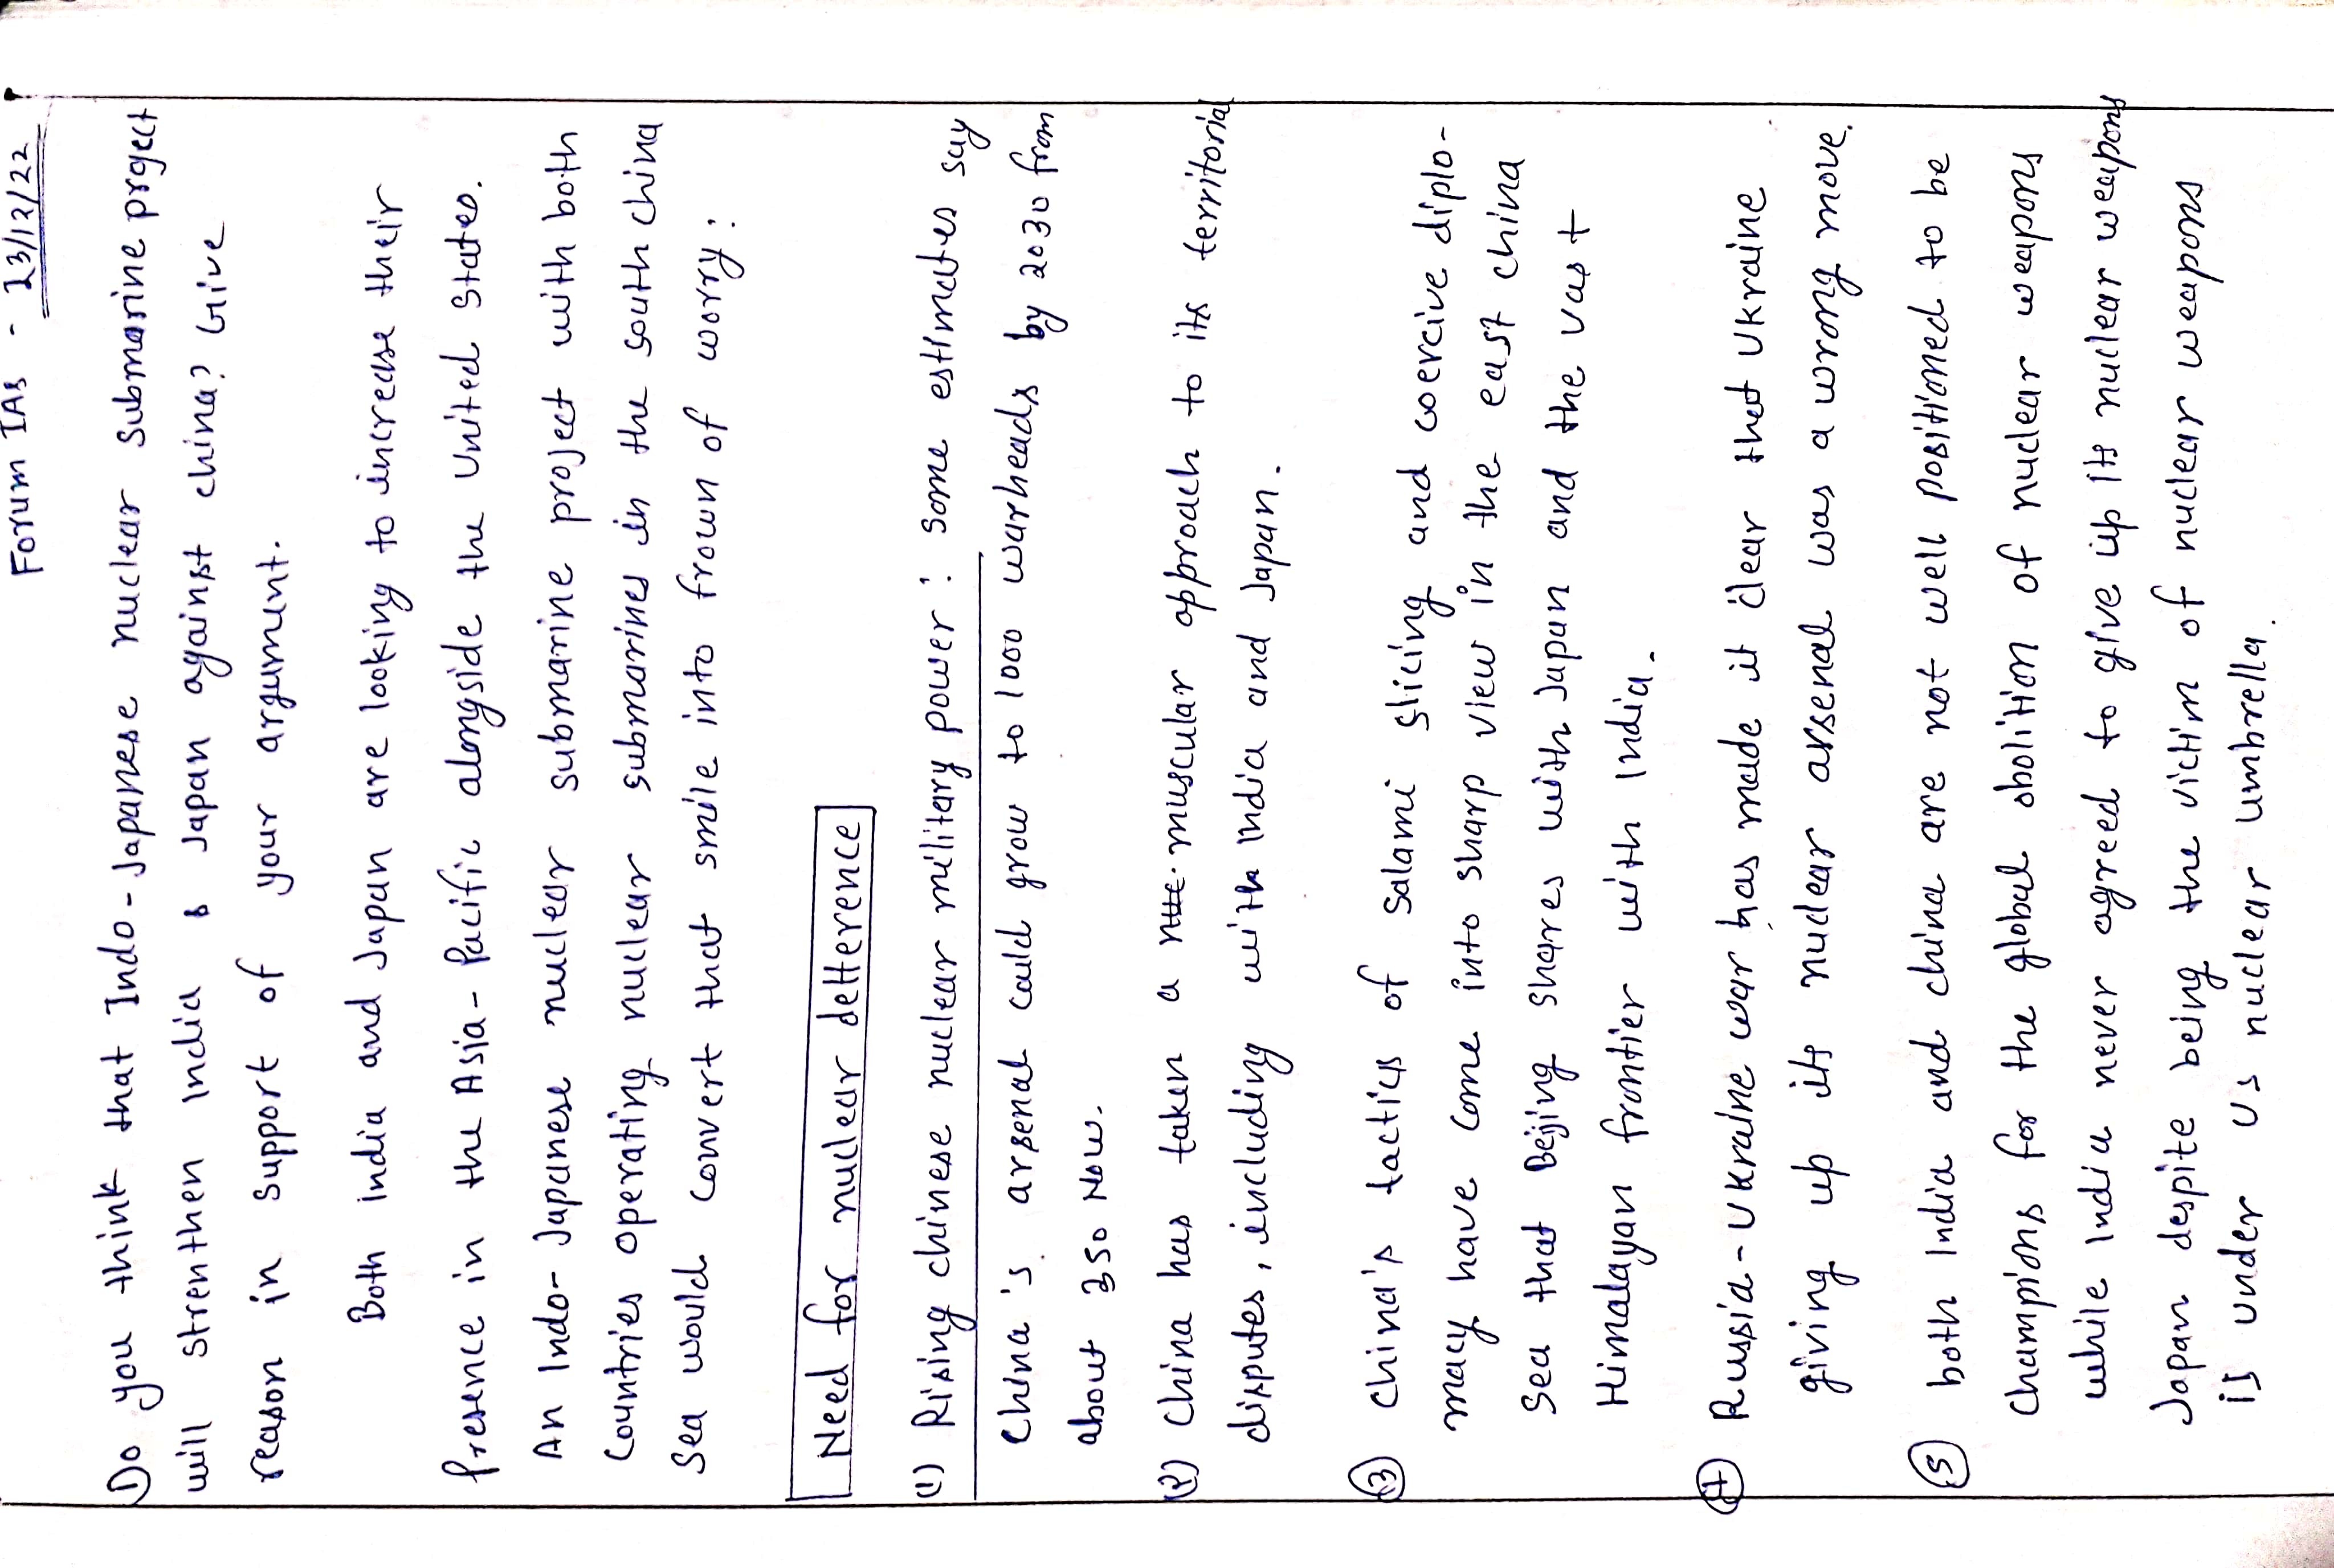 Forum IAS - 23/12/22
1) Do you think that Indo-Japanese nuclear submarine project
will strenthen India & Japan against china? Give
reason in support of your argument.
Both India and Japan are looking to increase their
Presence in the Asia-Pacific alongside the United States.
An Indo-Japanese nuclear submarine project with both
Countries operating nuclear submarines in the south china
Sea would convert that smile into frown of worry:
Need for nuclear detterence
(1) Rising chinese nuclear military power: some estimates say
China's arsenal could grow to 1000 warheads by 2030 from
about 350 now.
(2) China has taken a muscular approach to its territorial
disputes, including with India and Japan.
(3) China's tactics of salami slicing and coercive diplo-
macy have come into sharp view in the east china
Sea that Beijing shares with Japan and the vast
Himalayan frontier with India.
(4) Russia-Ukraine war has made it clear that Ukraine
giving up its nuclear arsenal was a wrong move.
(5) both India and china are not well positioned to be
Champions for the global abolition of nuclear weapons
while India never agreed to give up its nuclear weapons
Japan despite being the victim of nuclear weapons
is under US nuclear umbrella.